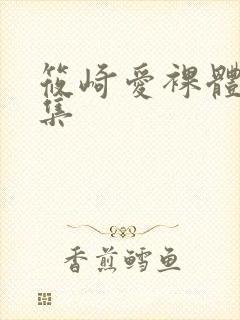 筱崎愛裸體
集
香煎鱈鱼